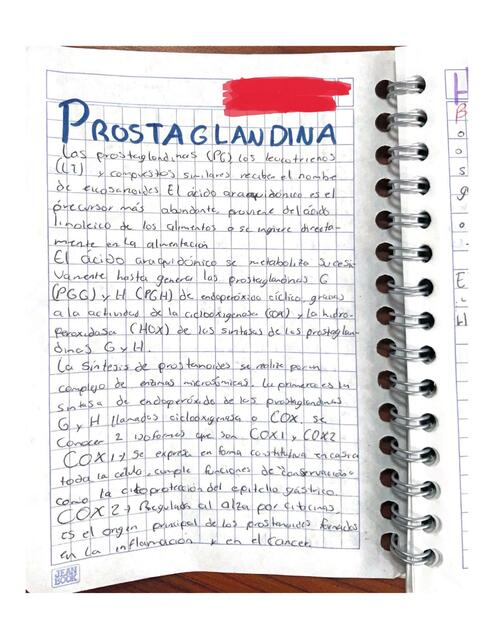 PROSTAGLANDINA
Las prostaglandinas (PG) los leucotrienos
(LT) y compuestos similares reciben el nombre
de eucosanoides El ácido araquidónico es el
precursor más abundante, proviene del ácido
linoleico de los alimentos o se ingiere directa-
mente en la alimentación
El ácido araquidónico se metaboliza sucesi-
vamente hasta generar las prostaglandinas G
(PGG) y H (PGH) de endoperóxido cíclico, gracias
a la actividad de la ciclooxigenasa (COX) y la hidro-
peroxidasa (HOX) de las sintasas de las prostaglan-
dinas G y H.
La síntesis de prostanoides se realiza por un
complejo de enzimas microsómicas. La primera es la
sintasa de endoperóxido de las prostaglandinas
G y H llamados ciclooxigenasa o COX. se
conocen 2 isoformas que son COX1 y COX2
COX1 → Se expresa en forma constitutiva en casi
toda la célula, cumple funciones de "conservación"
como la citoprotección del epitelio gástrico.
COX2 → Regulada al alza por citocinas,
es el origen principal de los prostanoides formados
en la inflamación y en el cancer.
JEAN
BOOK
H
B
o
o
s
g
o
E
H